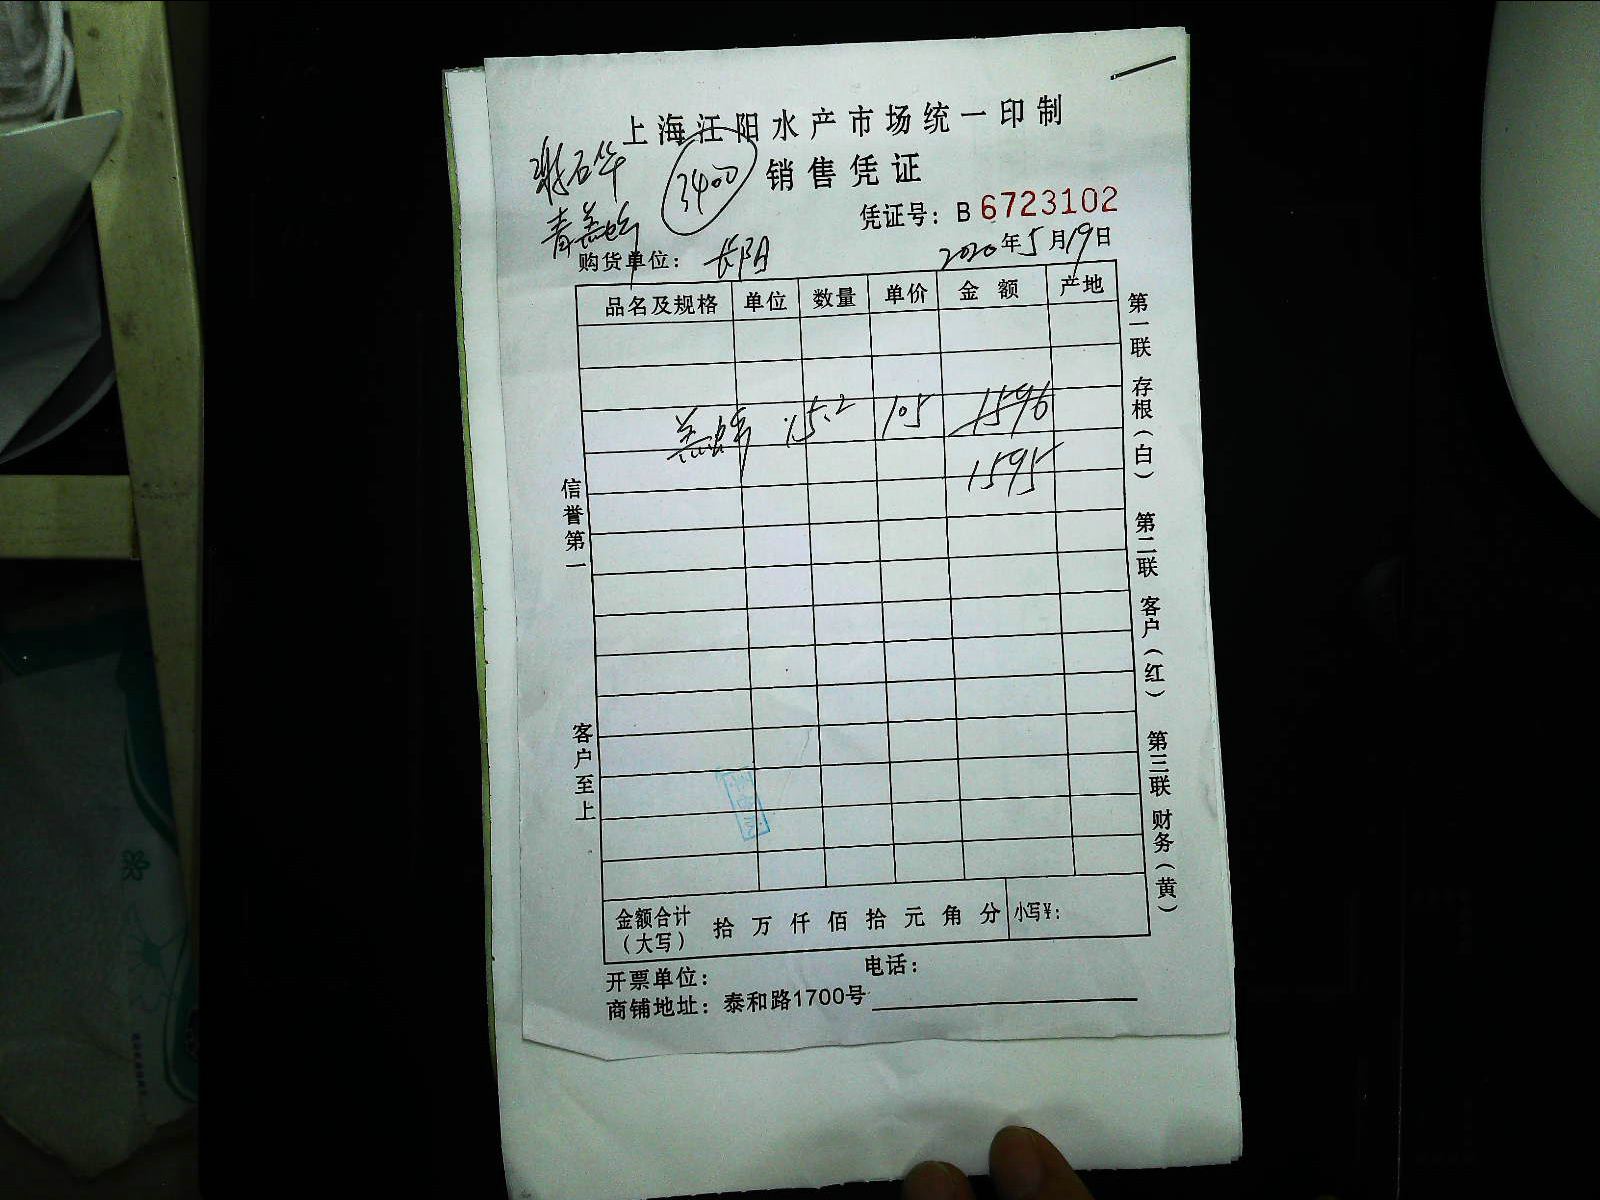 上海江阳水产市场统一印制
销售凭证
3400
凭证号: B 6723102
购货单位: 长阳
2020年5月19日
品名及规格 单位 数量 单价 金额 产地
15.2 105 1596
1595
金额合计(大写) 拾万仟佰拾元角分 小写¥:
开票单位: 电话:
商铺地址: 泰和路1700号
信誉第一
客户至上
第一联 存根(白) 第二联 客户(红) 第三联 财务(黄)